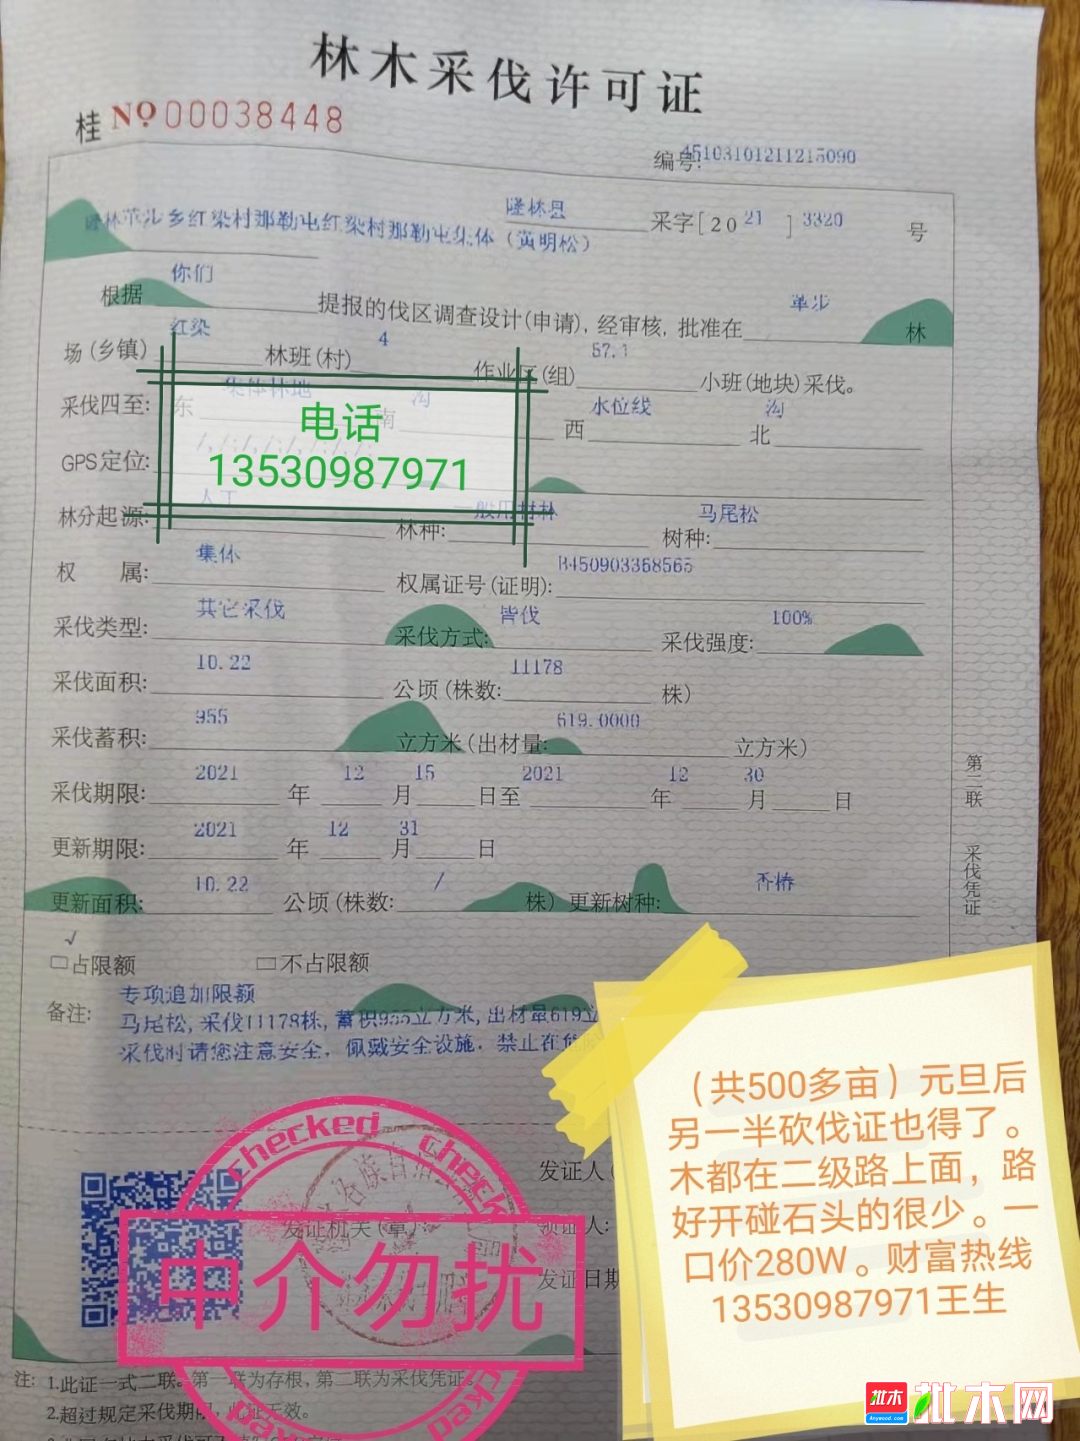 林木采伐许可证
桂 NO 00038448
编号:45103101211215090
隆林县 采字[2021]3320 号
隆林革步乡红染村那勒屯红染村那勒屯集体（黄明松）
根据 你们 提报的伐区调查设计(申请),经审核,批准在 革步 林
场(乡镇) 红染 林班(村) 4 作业区(组) 57.1 小班(地块)采伐。
采伐四至: 东 集体林地 南 沟 西 水位线 北 沟
GPS定位:
电话
13530987971
林分起源: 人工 林种: 一般用材林 树种: 马尾松
权 属: 集体 权属证号(证明): B450903368565
采伐类型: 其它采伐 采伐方式: 皆伐 采伐强度: 100%
采伐面积: 10.22 公顷(株数: 11178 株)
采伐蓄积: 955 立方米(出材量: 619.0000 立方米)
采伐期限: 2021 年 12 月 15 日至 2021 年 12 月 30 日
更新期限: 2021 年 12 月 31 日
更新面积: 10.22 公顷(株数: / 株) 更新树种: 香椿
√
□占限额 □不占限额
备注: 专项追加限额
马尾松,采伐11178株,蓄积955立方米,出材量619立
采伐时请您注意安全，佩戴安全设施，禁止在
第二联 采伐凭证
发证人(
发证机关(章): 领证人:
发证日期
checked check
中介勿扰
（共500多亩）元旦后
另一半砍伐证也得了。
木都在二级路上面，路
好开碰石头的很少。一
口价280W。财富热线
13530987971王生
注: 1.此证一式二联。第一联为存根,第二联为采伐凭证。
2.超过规定采伐期,此证无效。
批木 Anywood.com 批木网